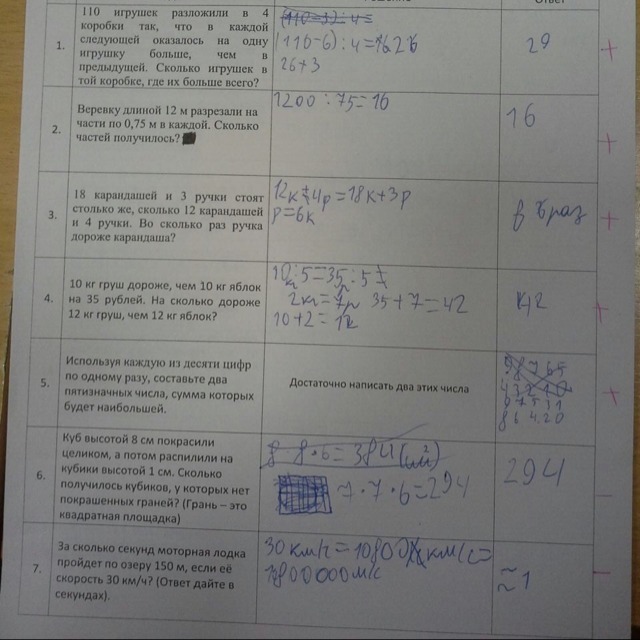 Ответ
1.
110 игрушек разложили в 4
коробки так, что в каждой
следующей оказалось на одну
игрушку больше, чем в
предыдущей. Сколько игрушек в
той коробке, где их больше всего?
(110-6):4=26
26+3
29
+
2.
Веревку длиной 12 м разрезали на
части по 0,75 м в каждой. Сколько
частей получилось?
1200:75=16
16
+
3.
18 карандашей и 3 ручки стоят
столько же, сколько 12 карандашей
и 4 ручки. Во сколько раз ручка
дороже карандаша?
12к+4р=18к+3р
р=6к
в 6 раз
+
4.
10 кг груш дороже, чем 10 кг яблок
на 35 рублей. На сколько дороже
12 кг груш, чем 12 кг яблок?
10:5=35:5
2кг=7р 35+7=42
10+2=
42
+
5.
Используя каждую из десяти цифр
по одному разу, составьте два
пятизначных числа, сумма которых
будет наибольшей.
Достаточно написать два этих числа
98765
43210
97531
86420
+
6.
Куб высотой 8 см покрасили
целиком, а потом распилили на
кубики высотой 1 см. Сколько
получилось кубиков, у которых нет
покрашенных граней? (Грань – это
квадратная площадка)
8·8·6=384(см²)
7·7·6=294
294
–
7.
За сколько секунд моторная лодка
пройдет по озеру 150 м, если её
скорость 30 км/ч? (Ответ дайте в
секундах).
30 км/ч=10800 км/с=
м/с
≈1
–